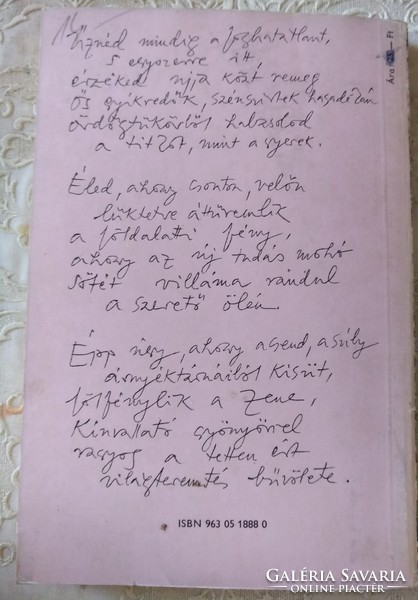 Űznéd mindig a foghatatlant,
s egyszerre itt,
érzéked ujja közt remeg
Ős gyökredűk, hasadékán
ördögtükörből habzsolod
a titkot, mint a gyerek.
Éled, ahogy csonton, velőn
lüktetve áttüremlik
a földalatti fény,
ahogy az új tudás mohó
sötét villáma rándul
a szerető ölén.
Épp úgy, ahogy a csend, a súly
árnyéktárnáiból kisüt,
fölfénylik a Zene,
Kínvallató gyönyörrel
ragyog a tetten ért
világteremtés bűvölete.
ISBN 963 05 1888 0
Ára Ft
GALÉRIA SAVARIA
ONLINE PIACTÉR